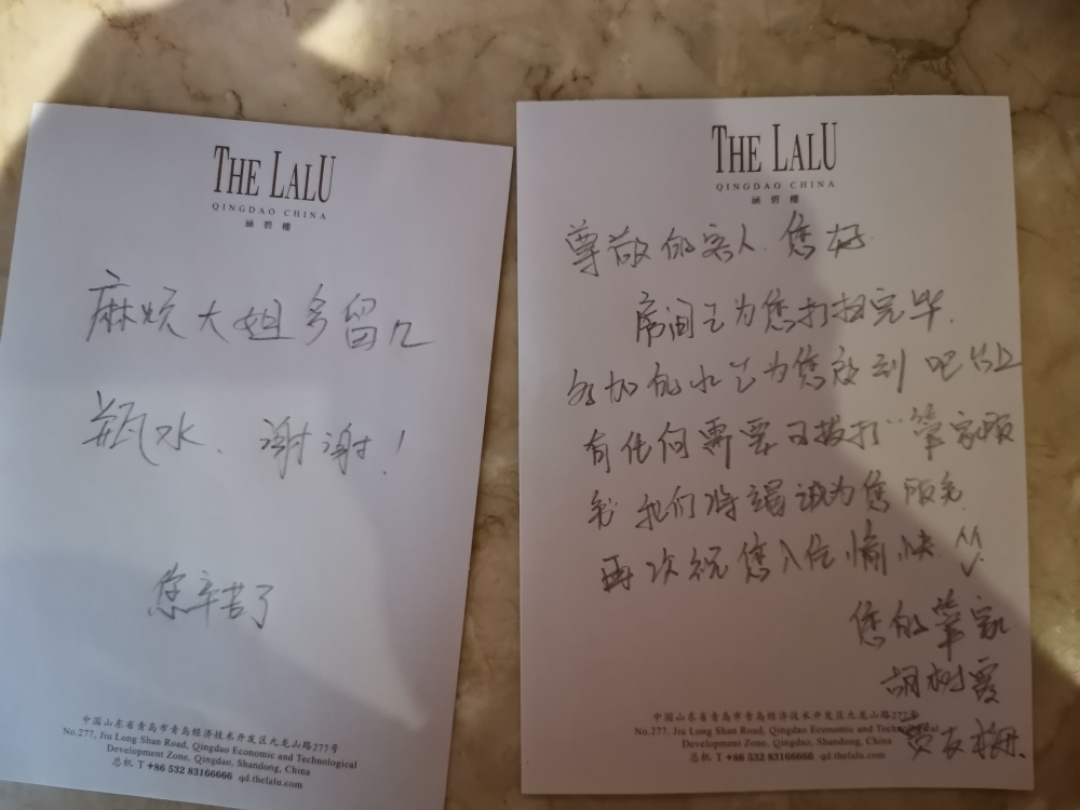 THE LALU
QINGDAO CHINA
涵碧樓
麻烦大姐多留几
瓶水、谢谢！
您辛苦了
中国山东省青岛市青岛经济技术开发区九龙山路277号
No.277, Jiu Long Shan Road, Qingdao Economic and Technological
Development Zone, Qingdao, Shandong, China
总机 T +86 532 83166666 qd.thelalu.com
THE LALU
QINGDAO CHINA
涵碧樓
尊敬的客人.您好
房间已为您打扫完毕.
多加的水已为您放到吧台上
有任何需要可拨打“管家服
务 我们将竭诚为您服务.
再次祝您入住愉快
您的管家
胡树霞
贾友梅.
中国山东省青岛市青岛经济技术开发区九龙山路277号
No.277, Jiu Long Shan Road, Qingdao Economic and Technological
Development Zone, Qingdao, Shandong, China
总机 T +86 532 83166666 qd.thelalu.com